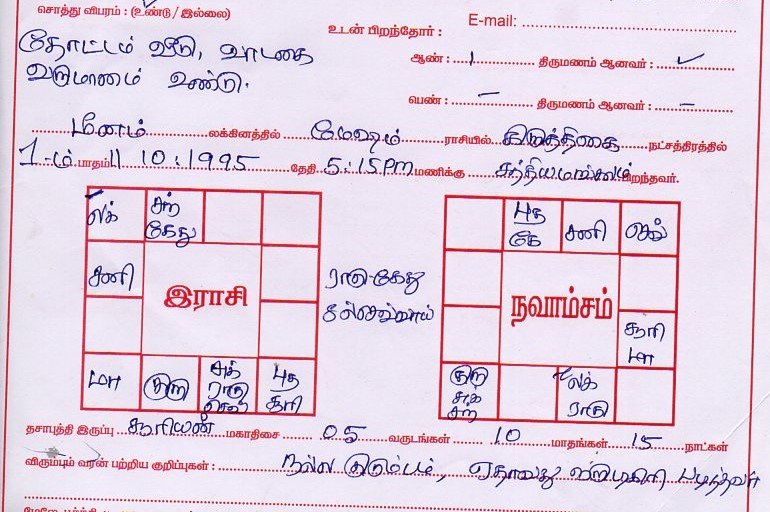 சொத்து விபரம் : (உண்டு / இல்லை)
E-mail:
உடன் பிறந்தோர் :
தோட்டம் வீடு, வாடகை
வருமானம் உண்டு.
ஆண் : 1 திருமணம் ஆனவர் : ✓
பெண் : – திருமணம் ஆனவர் : –
மீனம் லக்கினத்தில் மேஷம் ராசியில் கிருத்திகை நட்சத்திரத்தில்
1-ம் பாதம் 11 10 : 1995 தேதி 5:15 Pm மணிக்கு சத்தியமங்கலம் பிறந்தவர்.
லக் சந் கேது
சனி
இராசி
மா குரு சுக் ராகு செவ் புத சூரி
ராகு-கேது
செவ்வாய்
புத கே சனி செவ்
நவாம்சம்
சூரி மா
குரு சுக் சந் லக் ராகு
தசாபுத்தி இருப்பு சூரியன் மகாதிசை 05 வருடங்கள் 10 மாதங்கள் 15 நாட்கள்
விரும்பும் வரன் பற்றிய குறிப்புகள் : நல்ல குடும்பம், ஏதாவது டிகிரி படித்தவர்